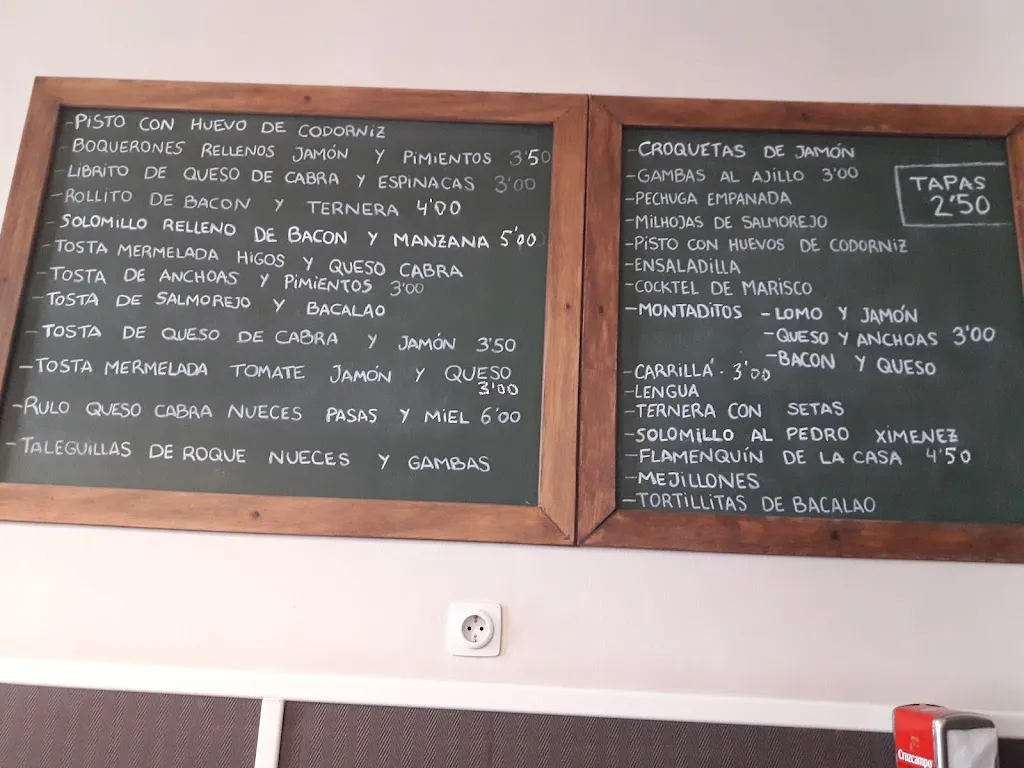 -PISTO CON HUEVO DE CODORNIZ
-BOQUERONES RELLENOS JAMÓN Y PIMIENTOS 3'50
-LIBRITO DE QUESO DE CABRA Y ESPINACAS 3'00
-ROLLITO DE BACON Y TERNERA 4'00
-SOLOMILLO RELLENO DE BACON Y MANZANA 5'00
-TOSTA MERMELADA HIGOS Y QUESO CABRA
-TOSTA DE ANCHOAS Y PIMIENTOS 3'00
-TOSTA DE SALMOREJO Y BACALAO
-TOSTA DE QUESO DE CABRA Y JAMÓN 3'50
-TOSTA MERMELADA TOMATE JAMÓN Y QUESO
3'00
-RULO QUESO CABRA NUECES PASAS Y MIEL 6'00
-TALEGUILLAS DE ROQUE NUECES Y GAMBAS
-CROQUETAS DE JAMÓN
-GAMBAS AL AJILLO 3'00
-PECHUGA EMPANADA
-MILHOJAS DE SALMOREJO
-PISTO CON HUEVOS DE CODORNIZ
-ENSALADILLA
-COCKTEL DE MARISCO
-MONTADITOS -LOMO Y JAMÓN
-QUESO Y ANCHOAS 3'00
-BACON Y QUESO
-CARRILLÁ. 3'00
-LENGUA
-TERNERA CON SETAS
-SOLOMILLO AL PEDRO XIMENEZ
-FLAMENQUÍN DE LA CASA 4'50
-MEJILLONES
-TORTILLITAS DE BACALAO
TAPAS
2'50
Cruzcampo